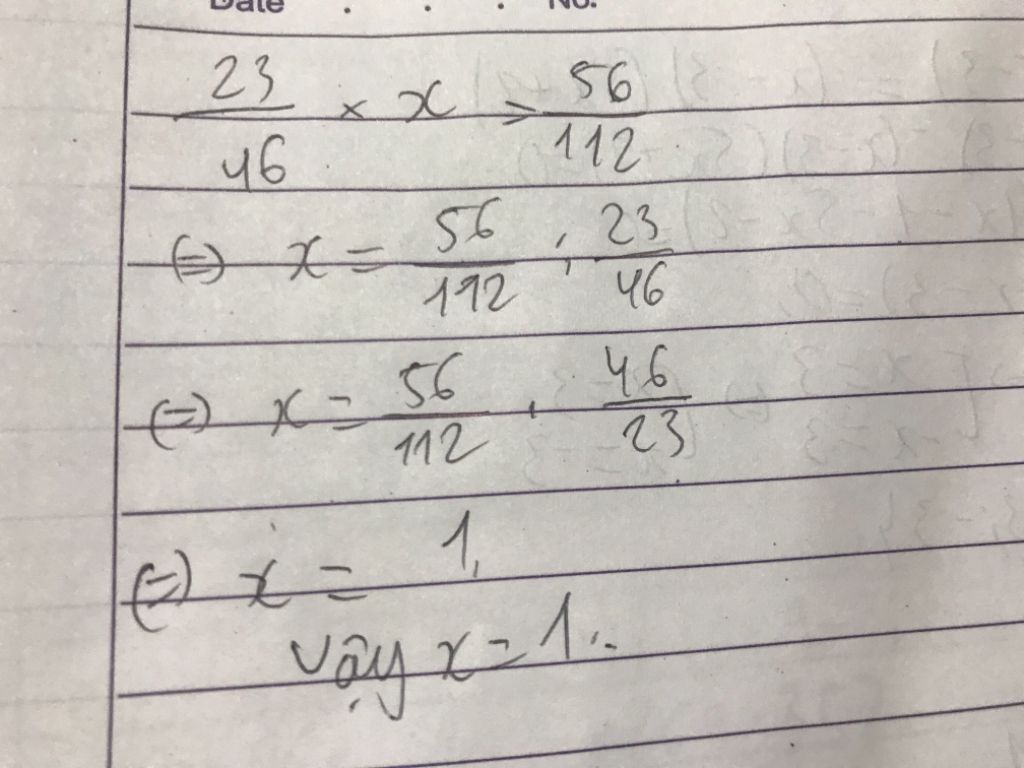 Date . . . No.
23/46 × x = 56/112
(=) x = 56/112 : 23/46
(=) x = 56/112 . 46/23
(=) x = 1.
Vậy x = 1.